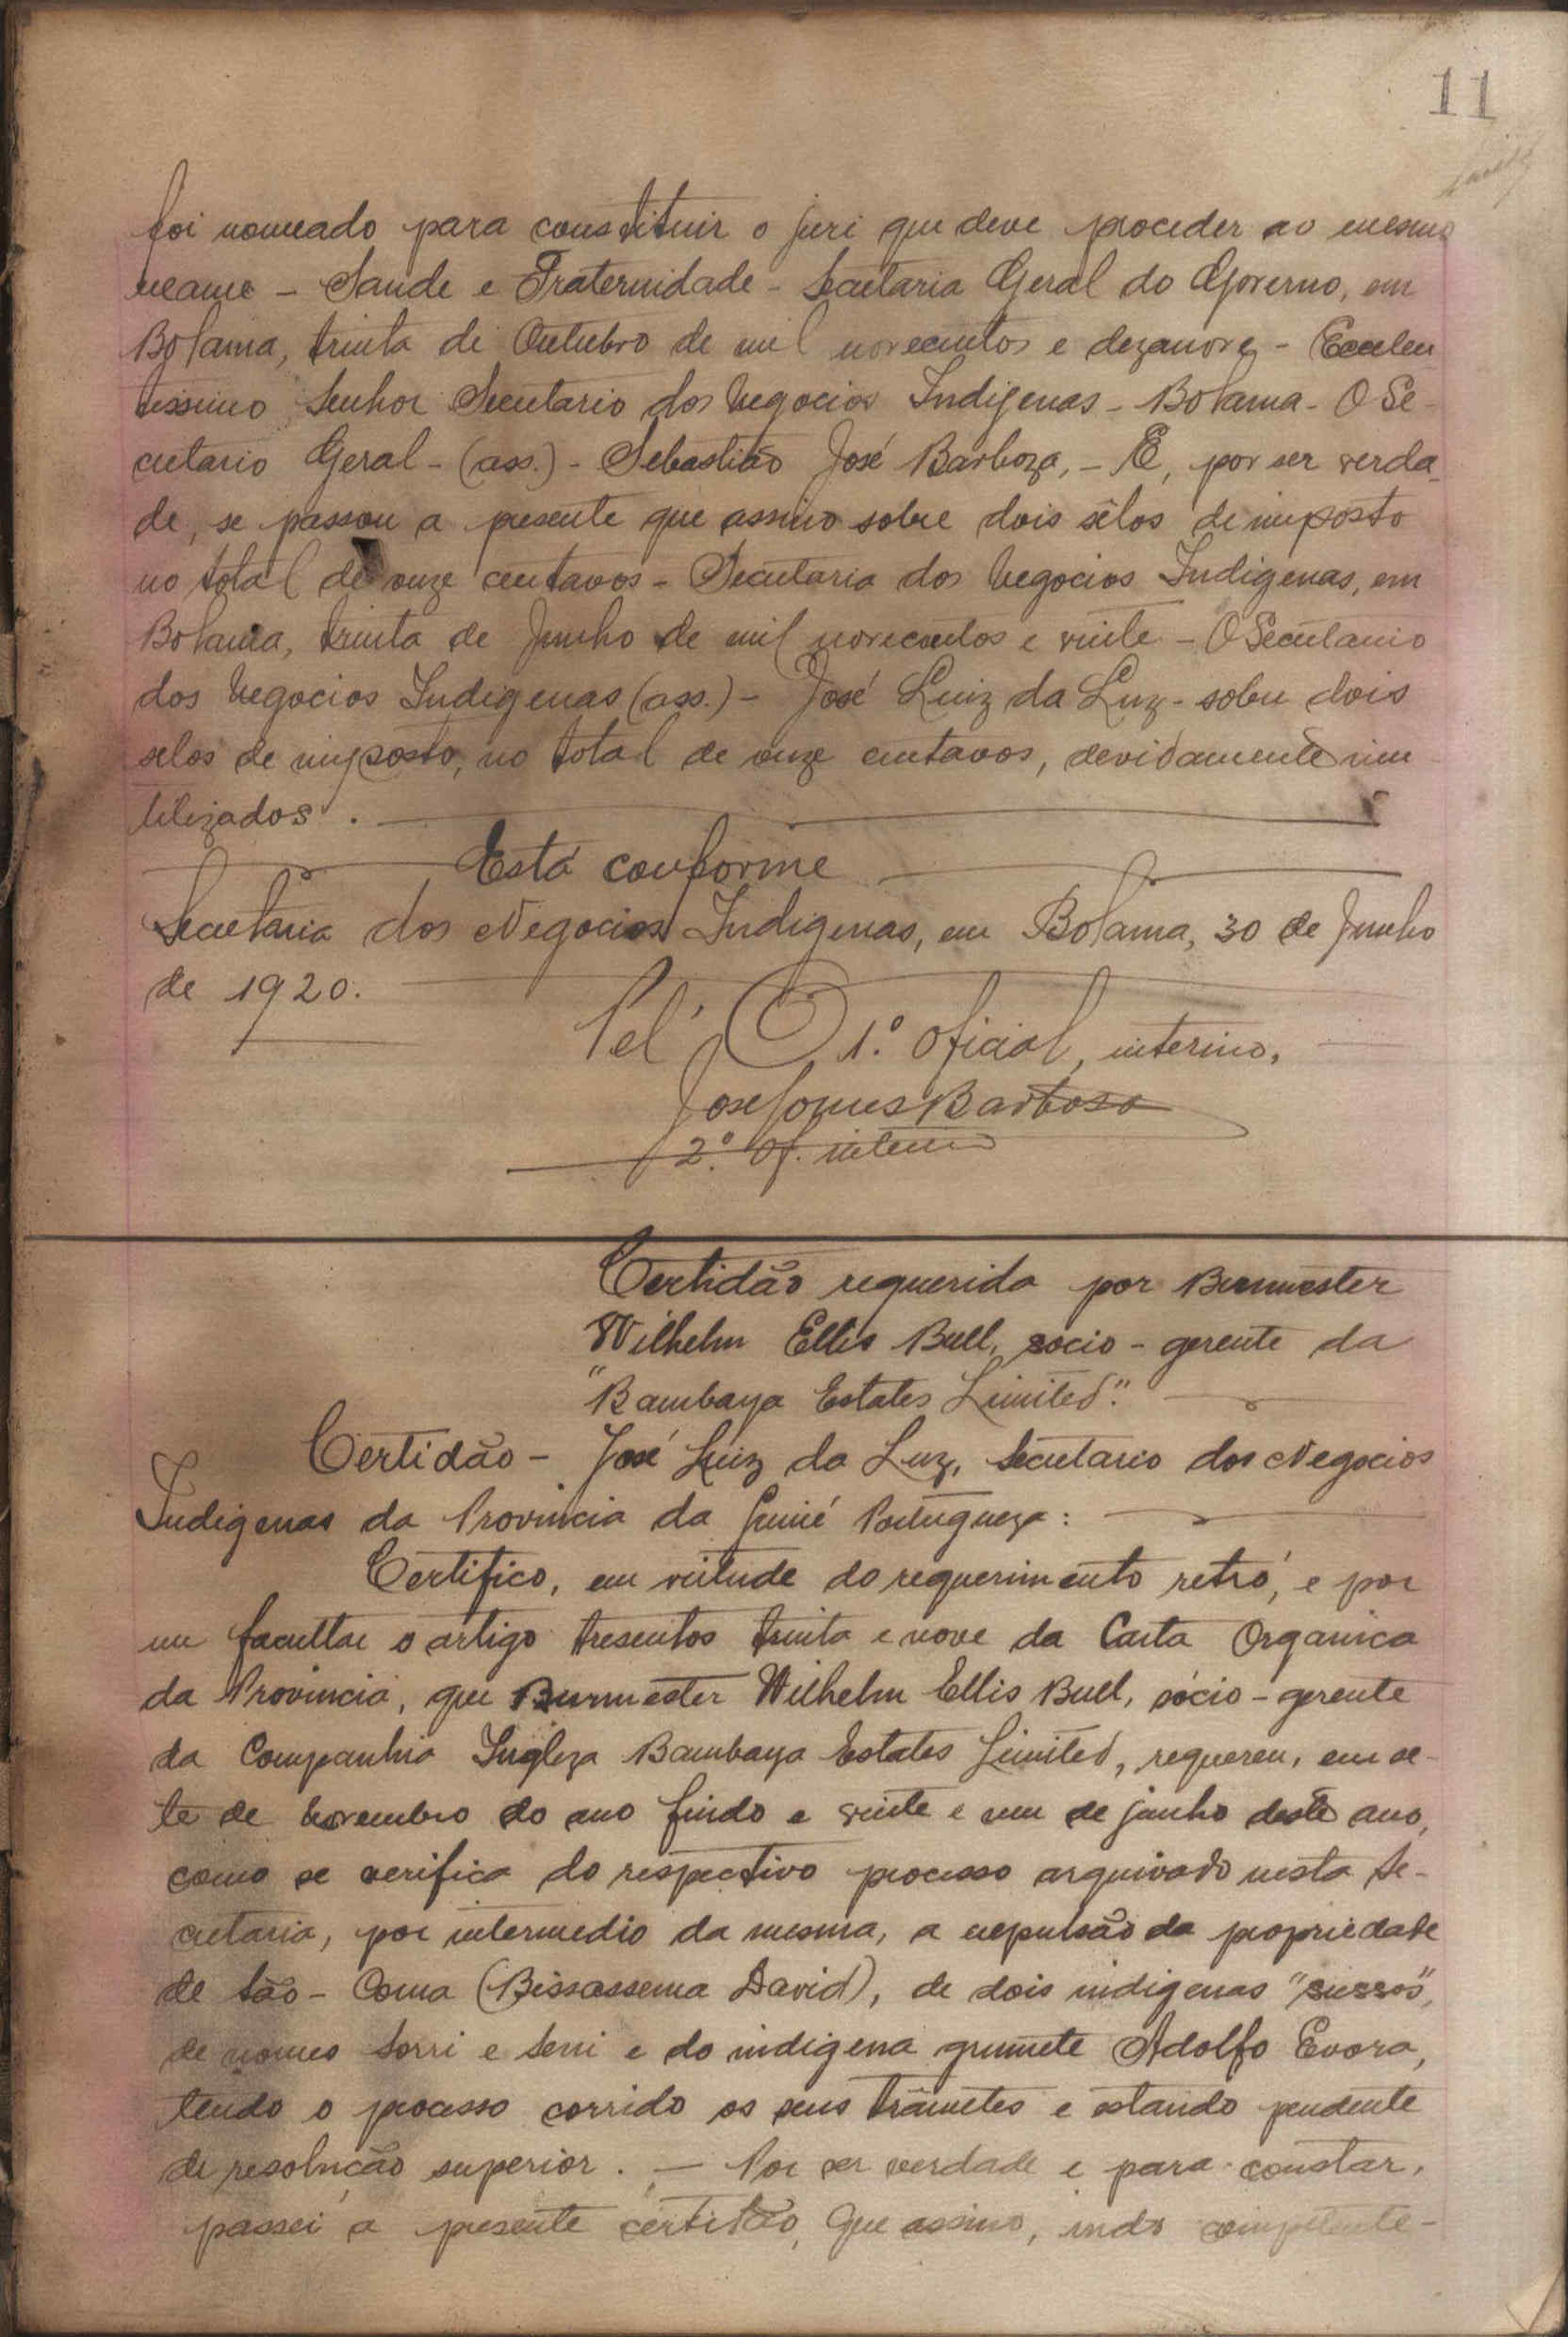 11
foi nomeado para constituir o juri que deve proceder ao mesmo
exame - Saude e Fraternidade - Secretaria Geral do Governo, em
Bolama, trinta de Outubro de mil novecentos e dezanove - Excelen
tissimo Senhor Secretario dos Negocios Indigenas - Bolama - O Se-
cretario Geral - (ass.) - Sebastião José Barboza, - E, por ser verda-
de, se passou a presente que assino sobre dois sêlos de imposto
no total de onze centavos - Secretaria dos Negocios Indigenas, em
Bolama, trinta de Junho de mil novecentos e vinte - O Secretario
dos Negocios Indigenas (ass.) - José Luiz da Luz - sobre dois
selos de imposto, no total de onze centavos, devidamente inu
tilizados.
Está conforme
Secretaria dos Negocios Indigenas, em Bolama, 30 de Junho
de 1920.
Pel' O 1.º Oficial, interino,
José Gomes Barbosa
2.º Of. interino
Certidão requerida por Burmester
Wilhelm Ellis Bull, socio-gerente da
"Bambaya Estates Limited".
Certidão - José Luiz da Luz, Secretario dos Negocios
Indigenas da Provincia da Guiné Portugueza:
Certifico, em virtude do requerimento retró, e por
me facultar o artigo tresentos trinta e nove da Carta Organica
da Provincia, que Burmester Wilhelm Ellis Bull, sócio-gerente
da Companhia Ingleza Bambaya Estates Limited, requereu, em se-
te de novembro do ano findo e vinte e um de junho deste ano,
como se verifica do respectivo processo arquivado nesta Se-
cretaria, por intermedio da mesma, a expulsão da propriedade
de São-Coma (Bissassema David), de dois indigenas "sussos",
de nomes Sorri e Seni e do indigena grumete Adolfo Evora,
tendo o processo corrido os seus trâmetes e estando pendente
de resolução superior. - Por ser verdade e para constar,
passei a presente certidão, que assino, indo competente-